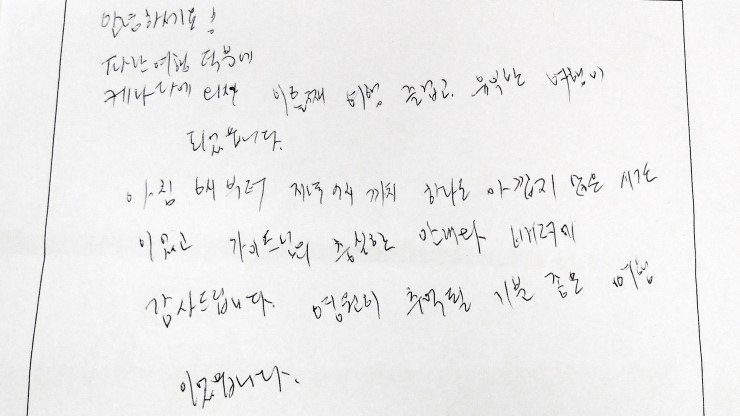 안녕하세요!
파란여행 덕분에
케나다에 와서 이틀째 여행 즐겁고, 유익한 여행이
되었습니다.
아침 6시부터 저녁 9시 까지 하나도 아깝지 않은 시간
이었고 가이드님의 충실한 안내와 배려에
감사드립니다. 영원히 추억될 기분 좋은 여행
이었습니다.